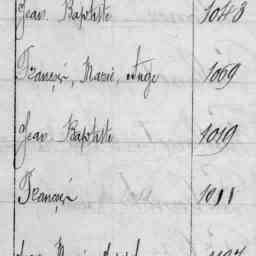 Jean Baptiste 1048
François, Marie, Ange 1069
Jean Baptiste 1019
François 1011